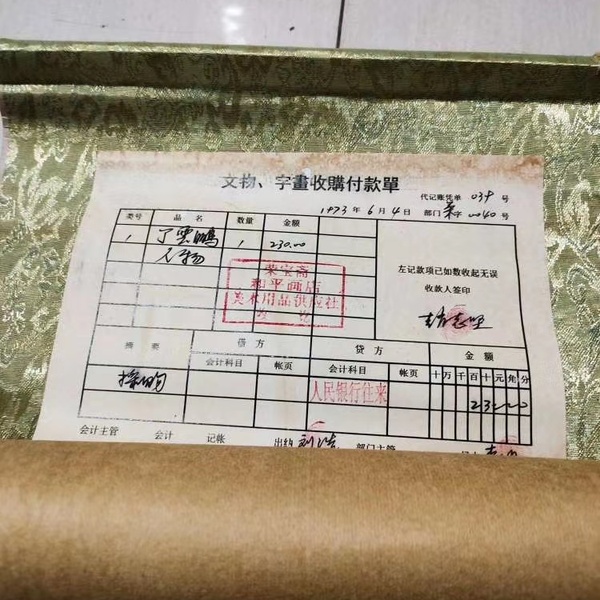 文物、字畫收購付款單
代记账凭单 039 号
1973年6月4日 部门 荣字 0040 号
类号 品名 数量 金额
1 丁雲鵬 1 230.00
人物
荣宝斋
和平画店
美术用品供应社
左记款项已如数收起无误
收款人签印
摘要 借方 贷方 金额
会计科目 帐页 会计科目 帐页 十万千百十元角分
採购 人民银行往来 23000
会计主管 会计 记帐 出纳 部门主管